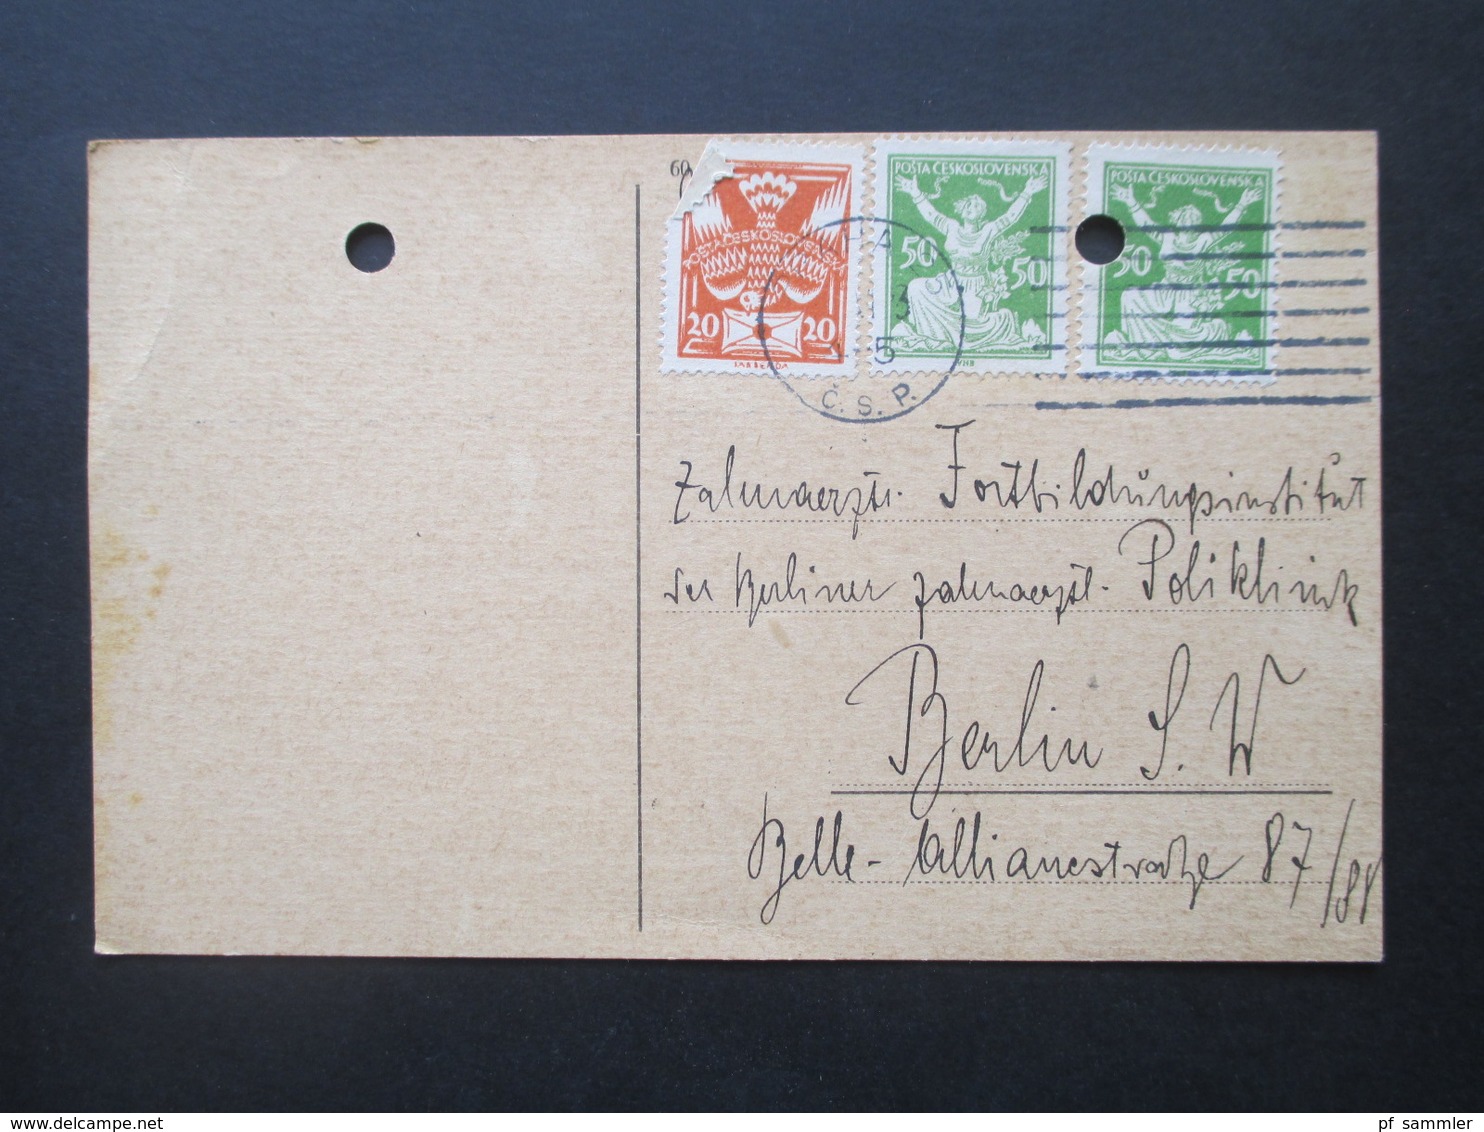 60
POŠTA ČESKOSLOVENSKÁ
20 20
POŠTA ČESKOSLOVENSKÁ
50 50
POŠTA ČESKOSLOVENSKÁ
50 50
PRAHA
Č. S. P.
Zahnaerztl. Fortbildungsinstitut
der Berliner zahnaerztl. Poliklinik
Berlin S. W
Belle-Alliancestraße 87/88
www.delcampe.net
pf_sammler